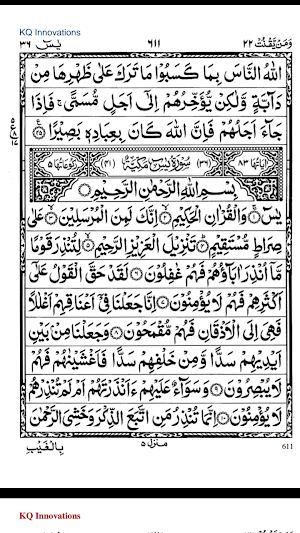 KQ Innovations
وَمَنْ يَّقْنُتْ ٢٢ ٦١١ يٰسٓ ٣٦
اللهُ النَّاسَ بِمَا كَسَبُوْا مَا تَرَكَ عَلٰى ظَهْرِهَا مِنْ
دَآبَّةٍ وَّلٰكِنْ يُّؤَخِّرُهُمْ اِلٰٓى اَجَلٍ مُّسَمًّى ۚ فَاِذَا
جَآءَ اَجَلُهُمْ فَاِنَّ اللهَ كَانَ بِعِبَادِهٖ بَصِيْرًا ۝٤٥
اٰيَاتُهَا ٨٣ (٣٦) سُوْرَةُ يٰسٓ مَكِّيَّةٌ (٤١) رُكُوْعَاتُهَا ٥
بِسْمِ اللهِ الرَّحْمٰنِ الرَّحِيْمِ
يٰسٓ ۝١ وَالْقُرْاٰنِ الْحَكِيْمِ ۝٢ اِنَّكَ لَمِنَ الْمُرْسَلِيْنَ ۝٣ عَلٰى
صِرَاطٍ مُّسْتَقِيْمٍ ۝٤ تَنْزِيْلَ الْعَزِيْزِ الرَّحِيْمِ ۝٥ لِتُنْذِرَ قَوْمًا
مَّآ اُنْذِرَ اٰبَآؤُهُمْ فَهُمْ غٰفِلُوْنَ ۝٦ لَقَدْ حَقَّ الْقَوْلُ عَلٰٓى
اَكْثَرِهِمْ فَهُمْ لَا يُؤْمِنُوْنَ ۝٧ اِنَّا جَعَلْنَا فِيْٓ اَعْنَاقِهِمْ اَغْلٰلًا
فَهِيَ اِلَى الْاَذْقَانِ فَهُمْ مُّقْمَحُوْنَ ۝٨ وَجَعَلْنَا مِنْۢ بَيْنِ
اَيْدِيْهِمْ سَدًّا وَّمِنْ خَلْفِهِمْ سَدًّا فَاَغْشَيْنٰهُمْ فَهُمْ
لَا يُبْصِرُوْنَ ۝٩ وَسَوَآءٌ عَلَيْهِمْ ءَاَنْذَرْتَهُمْ اَمْ لَمْ تُنْذِرْهُمْ
لَا يُؤْمِنُوْنَ ۝١٠ اِنَّمَا تُنْذِرُ مَنِ اتَّبَعَ الذِّكْرَ وَخَشِيَ الرَّحْمٰنَ
منزل ٥
بِالْغَيْبِ
611
KQ Innovations